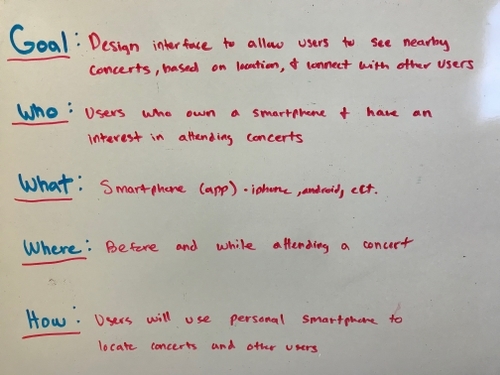 Goal: Design interface to allow users to see nearby
concerts, based on location, & connect with other users
Who: Users who own a smartphone & have an
interest in attending concerts
What: Smartphone (app) - iphone, android, ect.
Where: Before and while attending a concert
How: Users will use personal smartphone to
locate concerts and other users